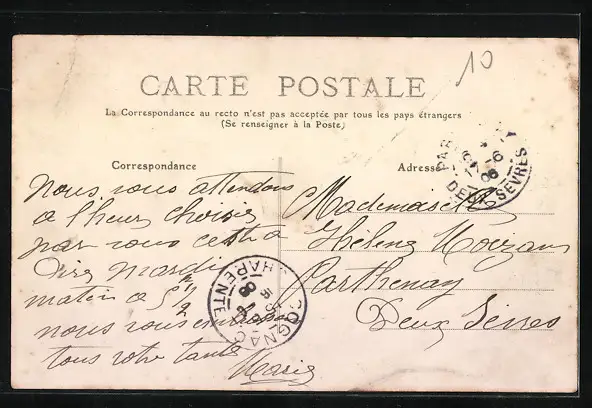 10
CARTE POSTALE
La Correspondance au recto n'est pas acceptée par tous les pays étrangers
(Se renseigner à la Poste)
Correspondance
Adresse
nous vous attendons
a l'heure choisie
par vous cest a
dire mardi
matin a 5 1/2
nous vous
tous votre tante
Marie
Mademoiselle
Hélène
Parthenay
Deux Sèvres
COGNAC
CHARENTE
DEUX SEVRES